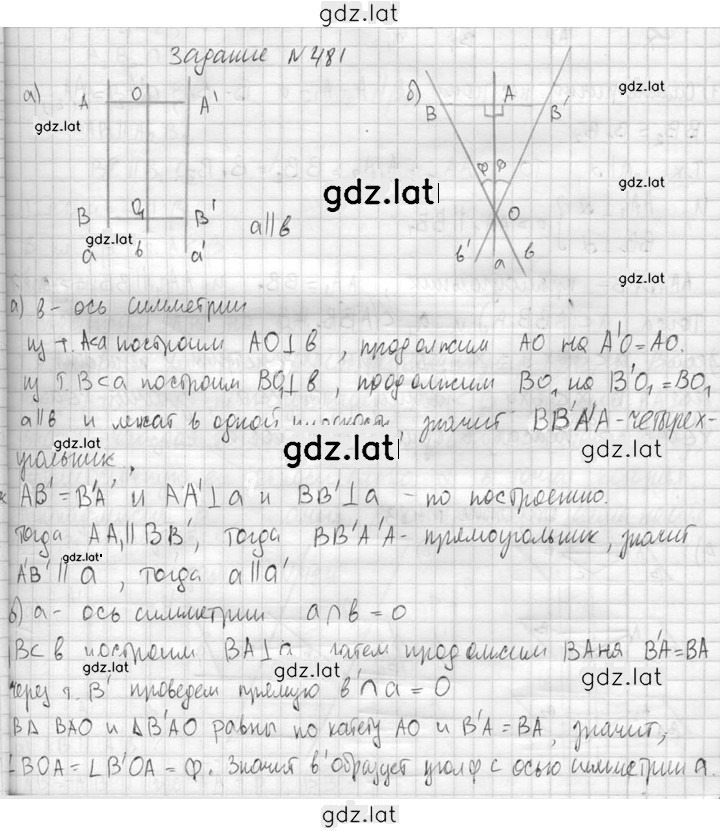 gdz.lat
Задание №481
а)
A O A'
B O₁ B'
a b a'
a||b
gdz.lat
б)
B A B'
φ φ
O
b' a b
gdz.lat
gdz.lat
gdz.lat
gdz.lat
gdz.lat
а) b - ось симметрии
из т. A⊂a построим AO⊥b, продолжим AO на A'O=AO.
из т. B⊂a построим BO₁⊥b, продолжим BO₁ на B'O₁=BO₁
a||b и лежат в одной, значит BB'A'A - четырех-
угольник,
gdz.lat
gdz.lat
gdz.lat
AB'=B'A' и AA'⊥a и BB'⊥a - по построению.
тогда AA₁||BB', тогда BB'A'A - прямоугольник, значит
gdz.lat
A'B'||a, тогда a||a'
б) a - ось симметрии a∩b=O
B⊂b построим BA⊥a затем продолжим BA на B'A=BA
gdz.lat
gdz.lat
gdz.lat
через т. B' проведем прямую b'∩a=O
BΔ BAO и ΔB'AO равны по катету AO и B'A=BA, значит,
∠BOA=∠B'OA=φ. Значит b' образует угол φ с осью симметрии a.
gdz.lat